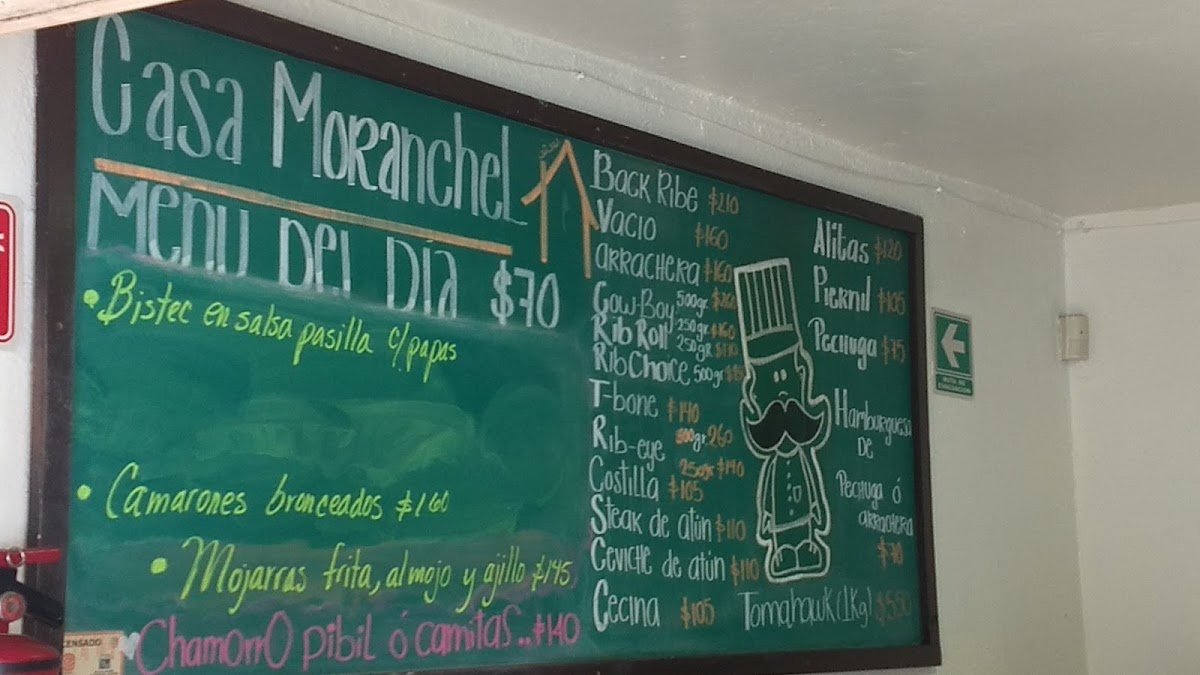 Casa Moranchel
Menú Del Día $70
• Bistec en salsa pasilla c/. papas
• Camarones bronceados $160
• Mojarras frita, almojo y ajillo $145
Chamorro pibil ó camitas.. $140
Back Ribe $210
Vacio $160
arrachera $160
Cow-Boy 500gr. $260
Rib Roll 250gr. $160
250gr.
Rib Choice 500gr
T-bone $140
Rib-eye 500gr. 260
250gr $140
Costilla $105
Steak de atún $110
Ceviche de atún $110
Cecina $105
Alitas $120
Piernil $105
Pechuga $75
Hamburguesa
de
Pechuga ó
arrachera
$70
Tomahawk (1Kg) $550
RUTA DE
EVACUACIÓN
CENSADO